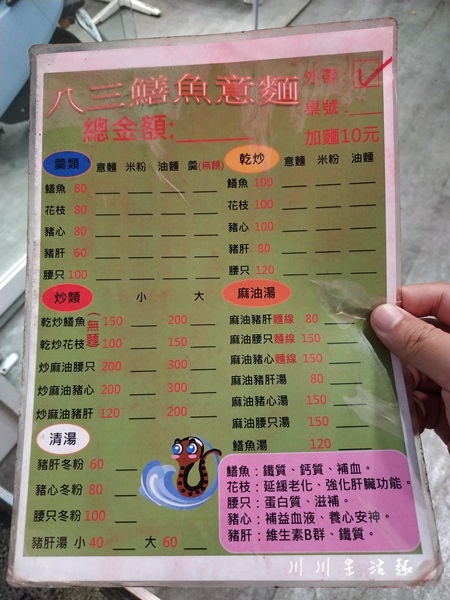 八三鱔魚意麵
外帶:
桌號:
總金額:
加麵10元
羹類 意麵 米粉 油麵 羹(無麵)
鱔魚 80
花枝 80
豬心 80
豬肝 60
腰只 100
乾炒 意麵 米粉 油麵
鱔魚 100
花枝 100
豬心 100
豬肝 80
腰只 120
炒類 小 大
(無麵)
乾炒鱔魚 150 200
乾炒花枝 100 150
炒麻油腰只 200 300
炒麻油豬心 200 300
炒麻油豬肝 120 200
麻油湯
麻油豬肝麵線 80
麻油腰只麵線 150
麻油豬心麵線 150
麻油豬肝湯 80
麻油豬心湯 150
麻油腰只湯 150
鱔魚湯 120
清湯
豬肝冬粉 60
豬心冬粉 80
腰只冬粉 100
豬肝湯 小 40 大 60
鱔魚:鐵質、鈣質、補血。
花枝:延緩老化、強化肝臟功能。
腰只:蛋白質、滋補。
豬心:補益血液、養心安神。
豬肝:維生素B群、鐵質。
川川生活趣